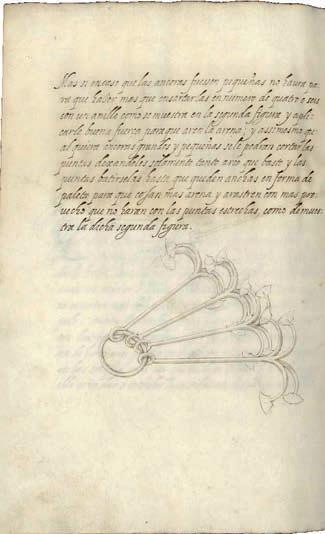 Mas si en caso que las ancoras fuesen pequeñas no haura pa
ra que hazer mas que ensortar las en numero de quatro o seis
con un anillo como se muestra en la segunda figura y apli
carle buena fuerça para que are la arena; y assimesmo qu
al quiera ancoras grandes y pequeñas se le podran cortar las
puntas dexandoles solamente tanto arco que baste y las
puntas batirselas hasta que queden anchas en forma de
paleta para que cojan mas arena y arrastren con mas pro
uecho que no haran con las puntas estrechas, como demues
tra la dicha segunda figura.